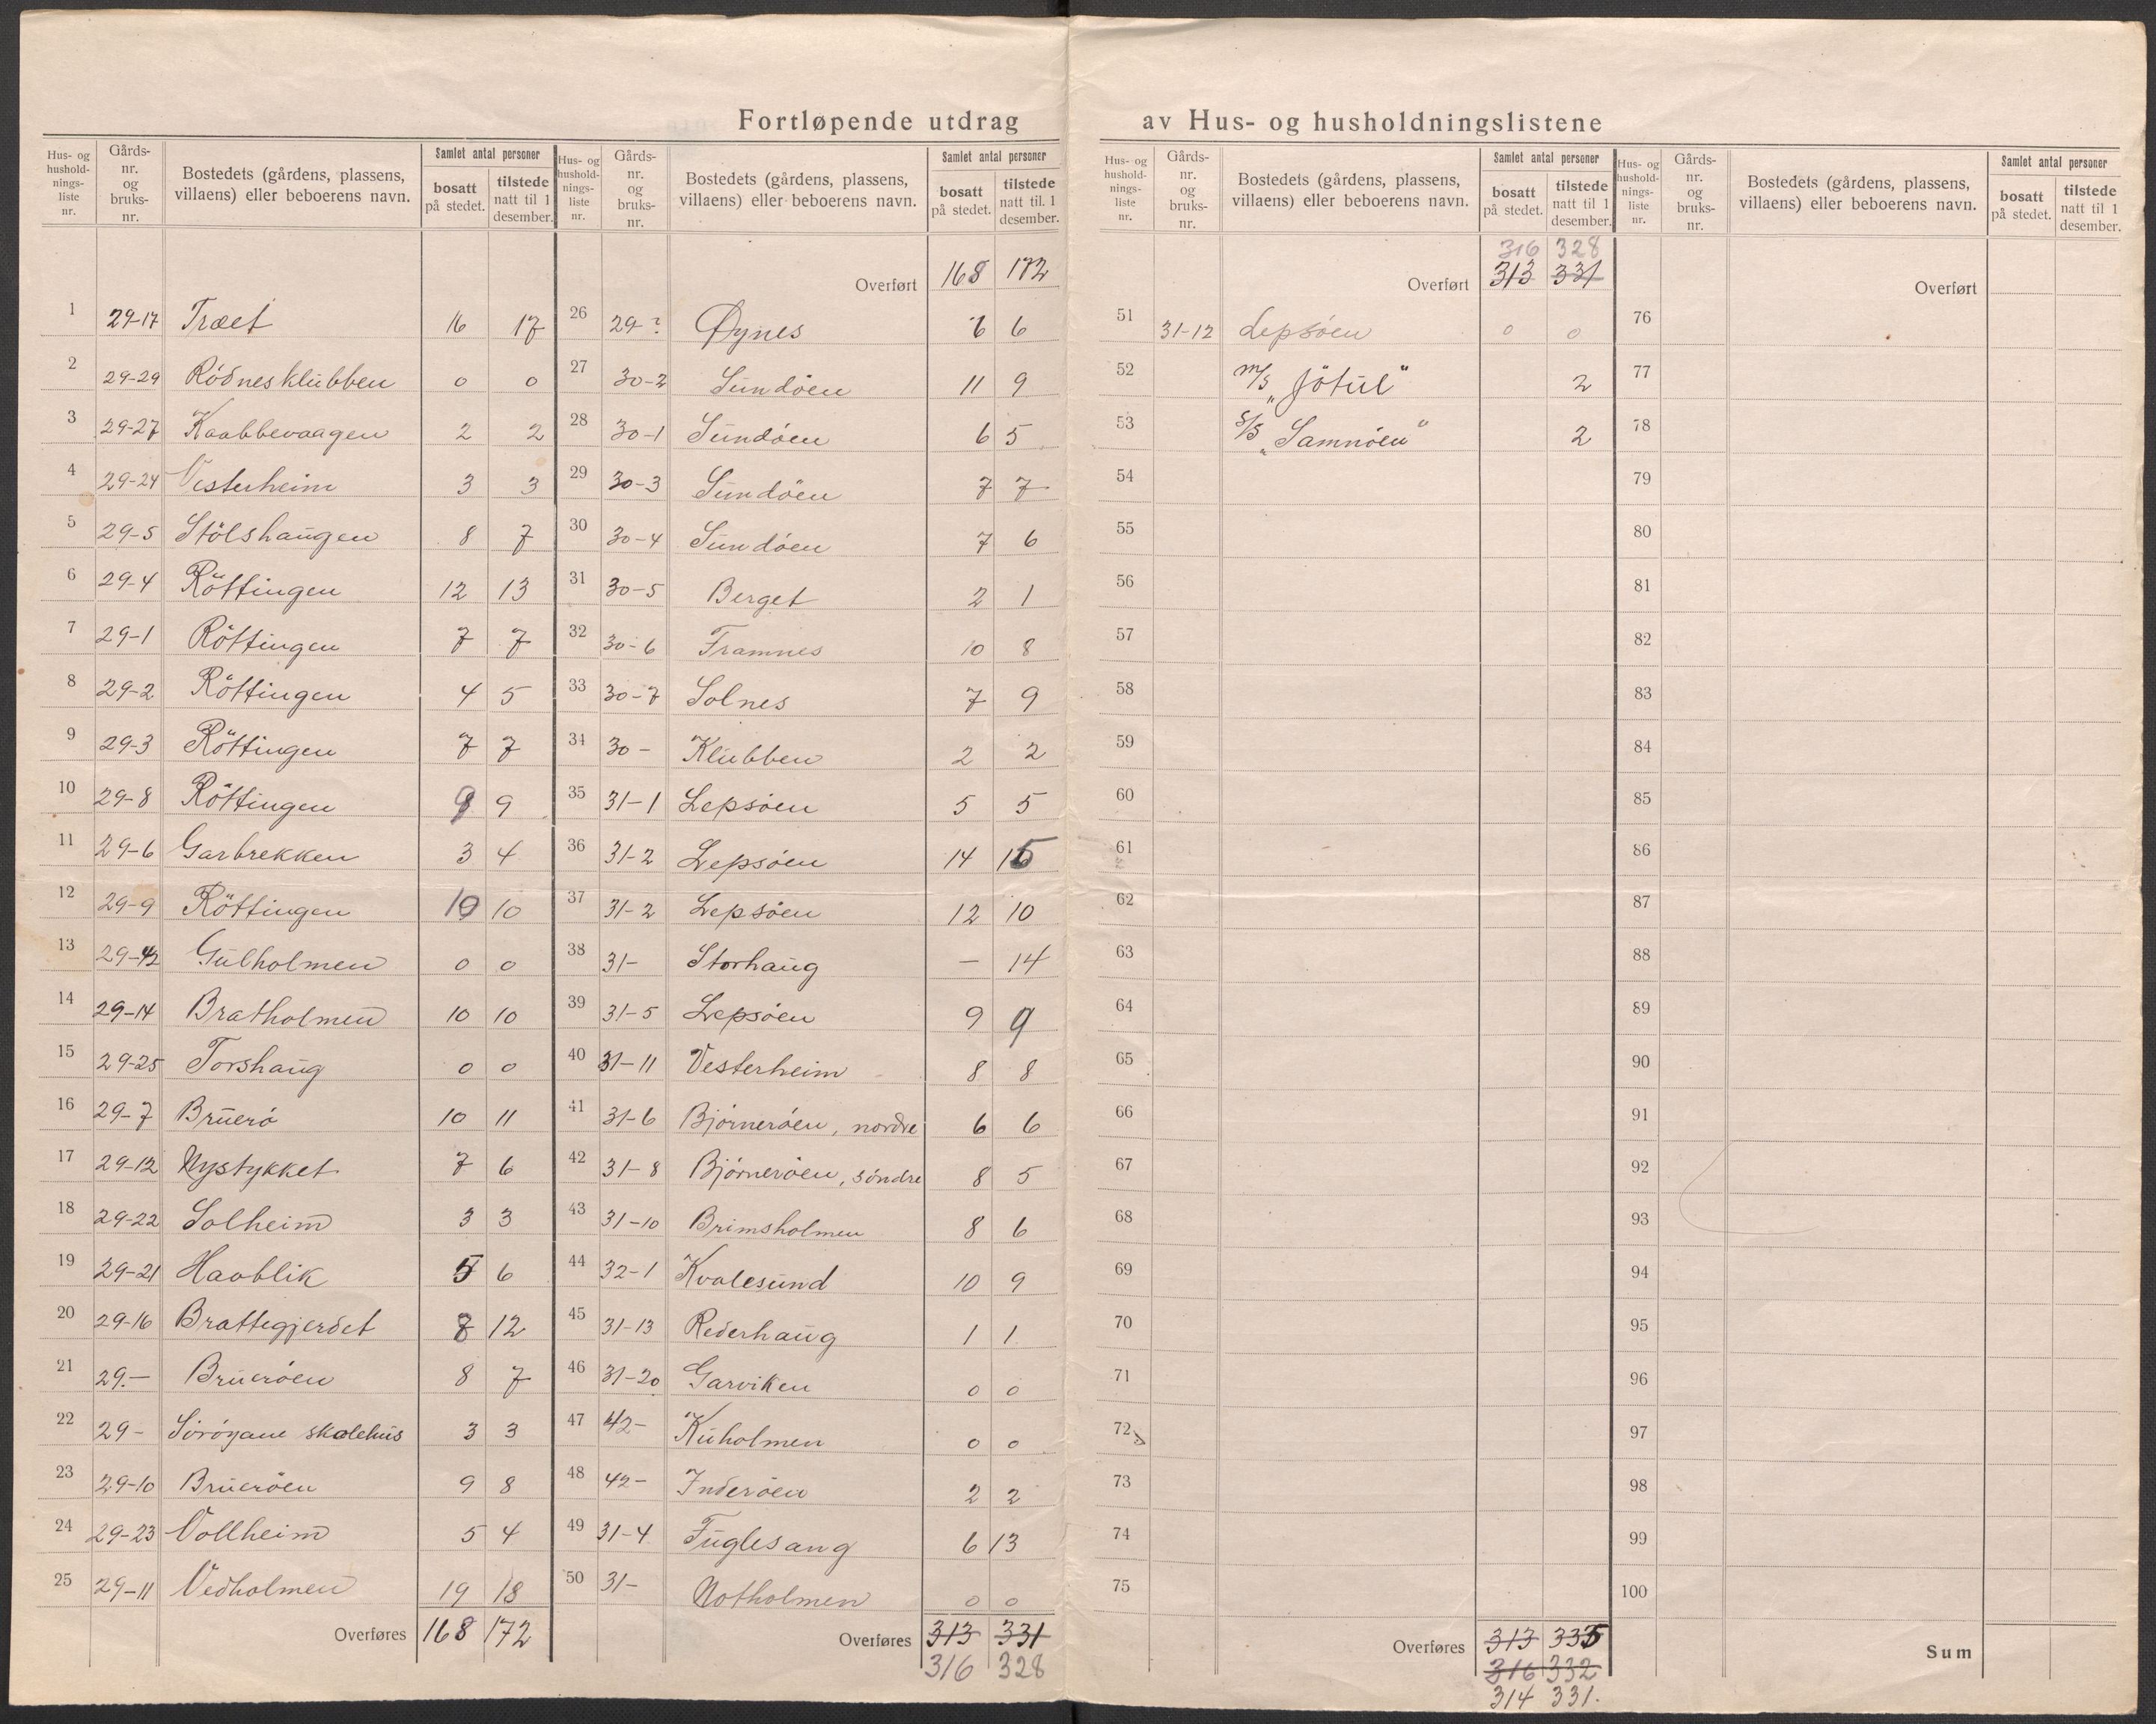 Fortløpende utdrag av Hus- og husholdningslistene
Hus- og hushold-nings-liste nr. | Gårds-nr. og bruks-nr. | Bostedets (gårdens, plassens, villaens) eller beboerens navn. | Samlet antal personer | bosatt på stedet. | tilstede natt til 1 desember.
1 29-17 Træet 16 17
2 29-29 Rödnesklubben 0 0
3 29-27 Kaabbevaagen 2 2
4 29-24 Vesterheim 3 3
5 29-5 Stölshaugen 8 7
6 29-4 Röttingen 12 13
7 29-1 Röttingen 7 7
8 29-2 Röttingen 4 5
9 29-3 Röttingen 7 7
10 29-8 Röttingen 9 9
11 29-6 Garbrekken 3 4
12 29-9 Röttingen 10 10
13 29-42 Gulholmen 0 0
14 29-14 Bratholmen 10 10
15 29-25 Torshaug 0 0
16 29-7 Bruerö 10 11
17 29-12 Nystykket 7 6
18 29-22 Solheim 3 3
19 29-21 Havblik 5 6
20 29-16 Brattegjerdet 8 12
21 29.- Brueröen 8 7
22 29- Söröyane skolehus 3 3
23 29-10 Brueröen 9 8
24 29-23 Vollheim 5 4
25 29-11 Vedholmen 19 18
Overføres 168 172
Hus- og hushold-nings-liste nr. | Gårds-nr. og bruks-nr. | Bostedets (gårdens, plassens, villaens) eller beboerens navn. | Samlet antal personer | bosatt på stedet. | tilstede natt til. 1 desember.
Overført 168 172
26 29-? Øynes 6 6
27 30-2 Sundöen 11 9
28 30-1 Sundöen 6 5
29 30-3 Sundöen 7 7
30 30-4 Sundöen 7 6
31 30-5 Berget 2 1
32 30-6 Framnes 10 8
33 30-7 Solnes 7 9
34 30- Klubben 2 2
35 31-1 Lepsöen 5 5
36 31-2 Lepsöen 14 15
37 31-2 Lepsöen 12 10
38 31- Storhaug — 14
39 31-5 Lepsöen 9 9
40 31-11 Vesterheim 8 8
41 31-6 Björneröen, nordre 6 6
42 31-8 Björneröen, söndre 8 5
43 31-10 Brimsholmen 8 6
44 32-1 Kvalesund 10 9
45 31-13 Rederhaug 1 1
46 31-20 Garviken 0 0
47 42- Kuholmen 0 0
48 42- Inderöen 2 2
49 31-4 Fuglesang 6 13
50 31- Notholmen 0 0
Overføres 313 331
316 328
Hus- og hushold-nings-liste nr. | Gårds-nr. og bruks-nr. | Bostedets (gårdens, plassens, villaens) eller beboerens navn. | Samlet antal personer | bosatt på stedet. | tilstede natt til 1 desember.
316 328
Overført 313 331
51 31-12 Lepsöen 0 0
52 m/s „Jötul" 2
53 s/s „Samnöen" 2
54
55
56
57
58
59
60
61
62
63
64
65
66
67
68
69
70
71
72
73
74
75
Overføres 313 335
316 332
314 331.
Hus- og hushold-nings-liste nr. | Gårds-nr. og bruks-nr. | Bostedets (gårdens, plassens, villaens) eller beboerens navn. | Samlet antal personer | bosatt på stedet. | tilstede natt til 1 desember.
Overført
76
77
78
79
80
81
82
83
84
85
86
87
88
89
90
91
92
93
94
95
96
97
98
99
100
Sum